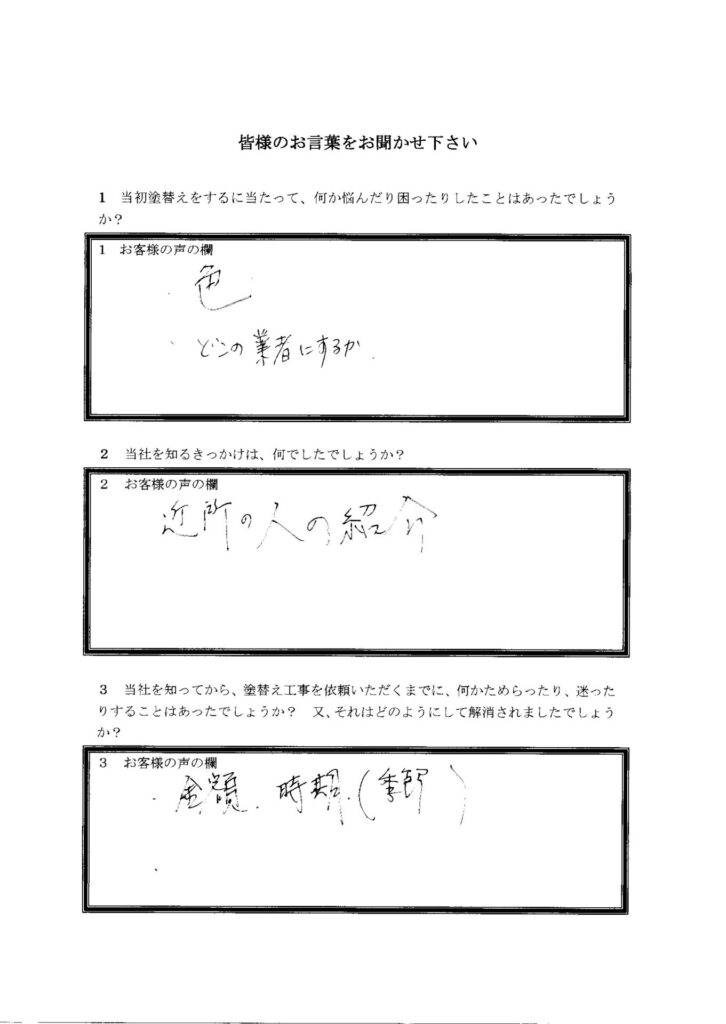 皆様のお言葉をお聞かせ下さい
1 当初塗替えをするに当たって、何か悩んだり困ったりしたことはあったでしょう
か？
1 お客様の声の欄
・色
・どこの業者にするか.
2 当社を知るきっかけは、何でしたでしょうか？
2 お客様の声の欄
近所の人の紹介
3 当社を知ってから、塗替え工事を依頼いただくまでに、何かためらったり、迷った
りすることはあったでしょうか？ 又、それはどのようにして解消されましたでしょう
か？
3 お客様の声の欄
・金額. 時期.(季節)
・